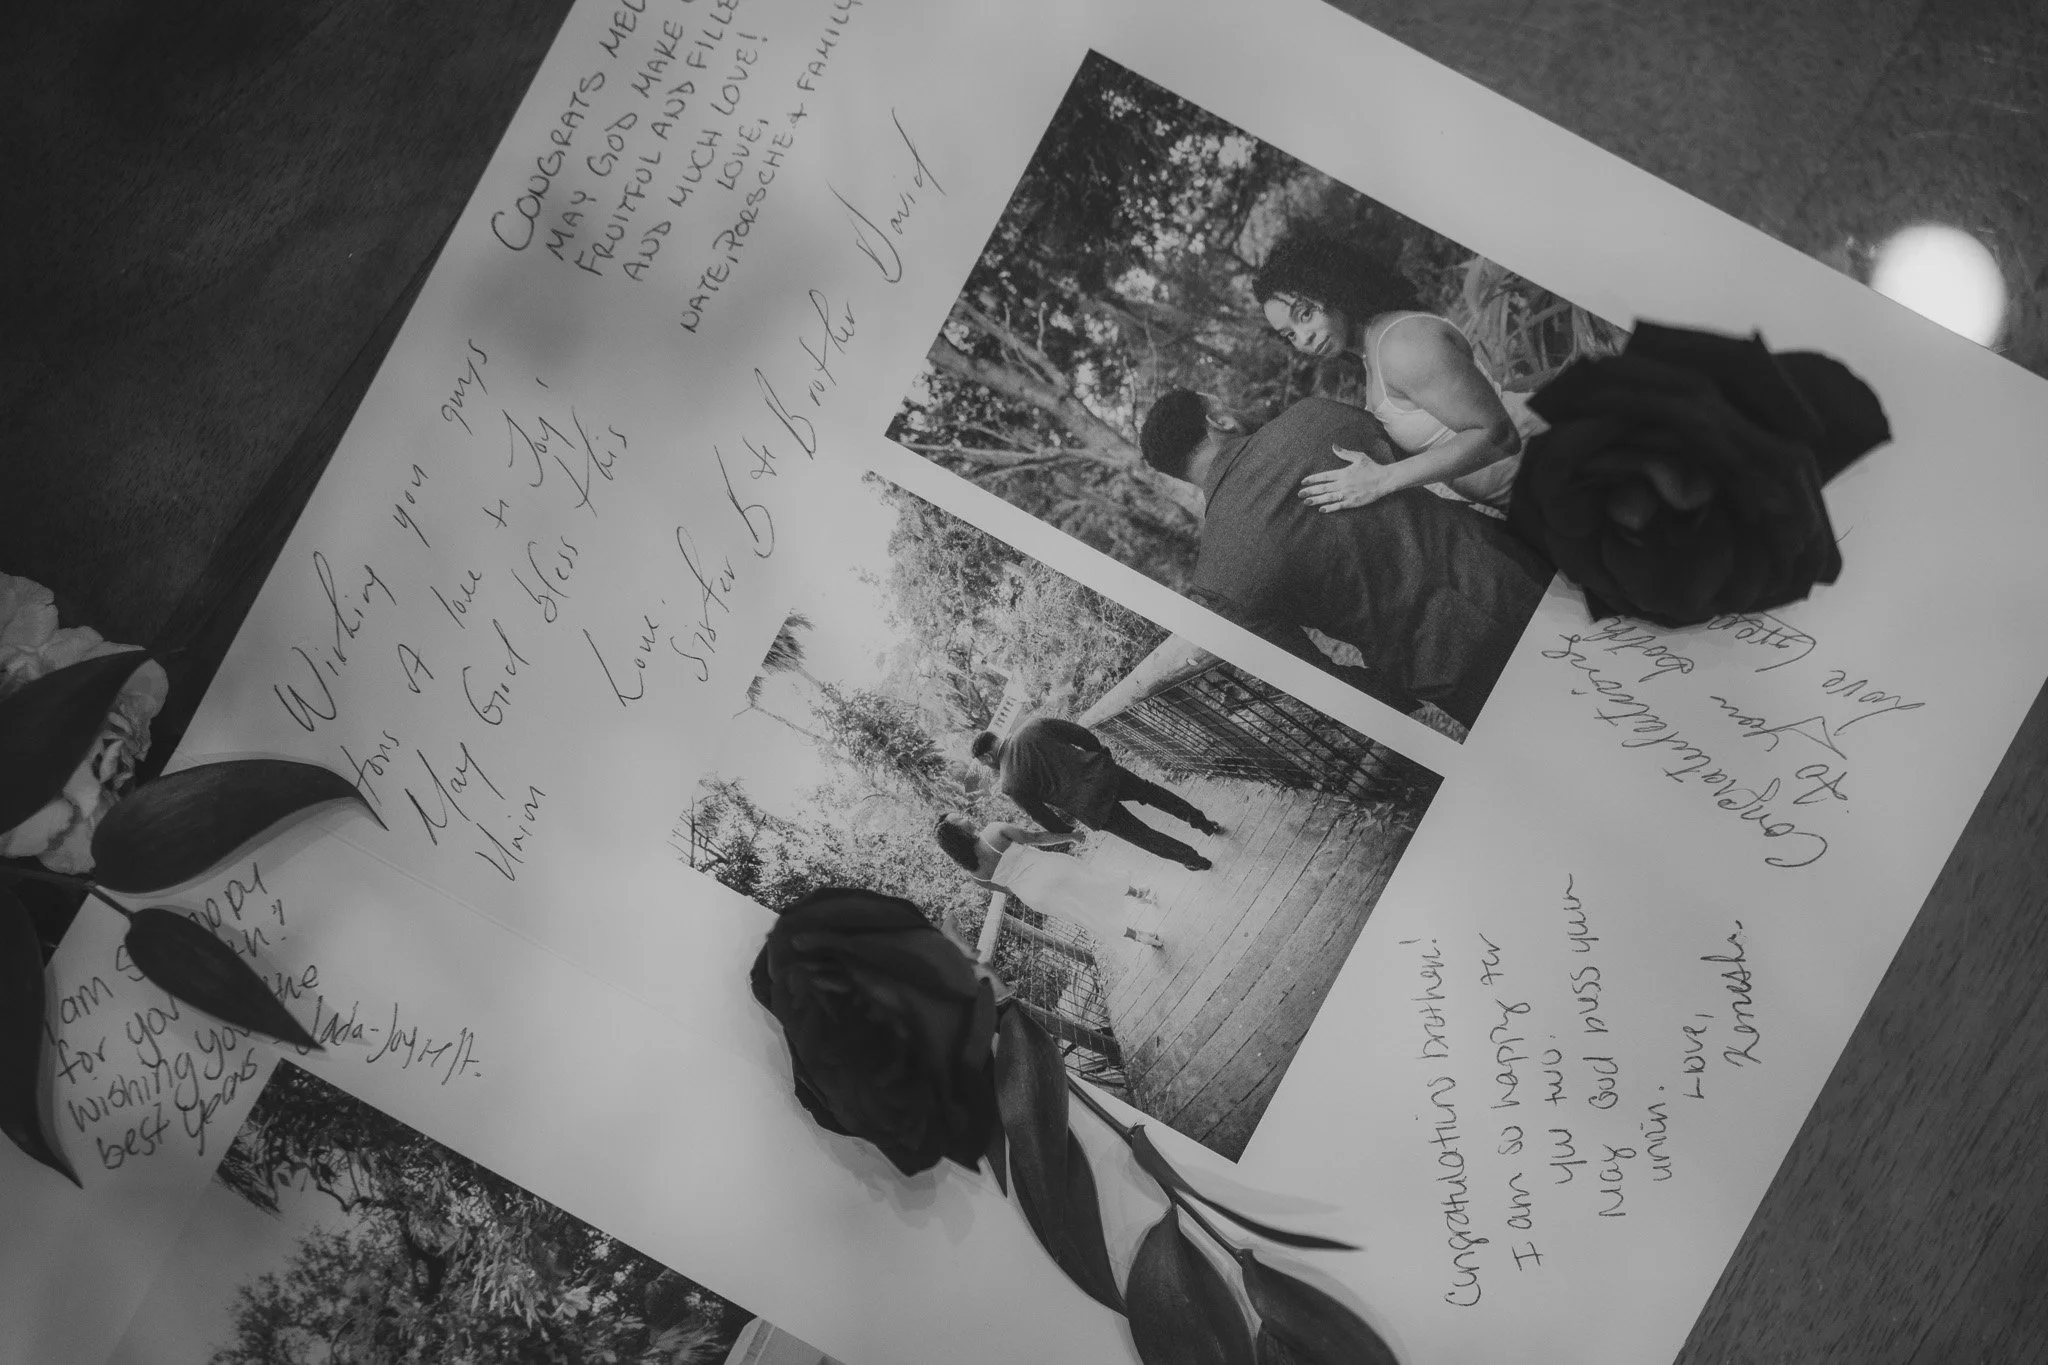 CONGRATS MEL
MAY GOD MAKE
FRUITFUL AND FILLE
AND MUCH LOVE!
LOVE,
NATE, PORSCHE & FAMILY
Wishing you guys
tons A love & Joy,
May God bless this
Union
Love.
Sister B & Brother David
I am
for you
wishing you the
best years
- Jada-Joy
Congratulations
to You both
Love
Congratulations brother!
I am so happy for
you two.
May God bless your
union.
Love,
Kenesha